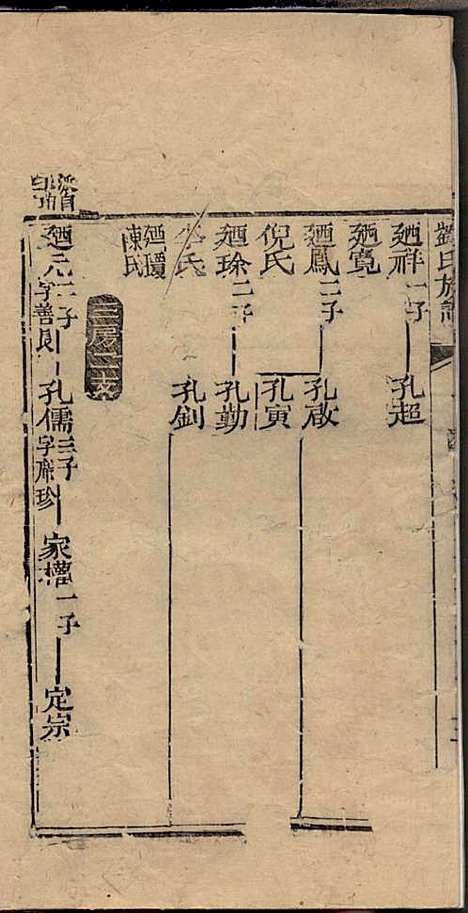 劉氏族譜
廼祥一子 孔超
廼寬
廼鳳二子 孔啟
倪氏 孔寅
廼珍二子 孔勤
李氏 孔釗
廼環
陳氏
三房二支
廼元二子字善良 孔儒三子字席珍 家槽一子 定宗